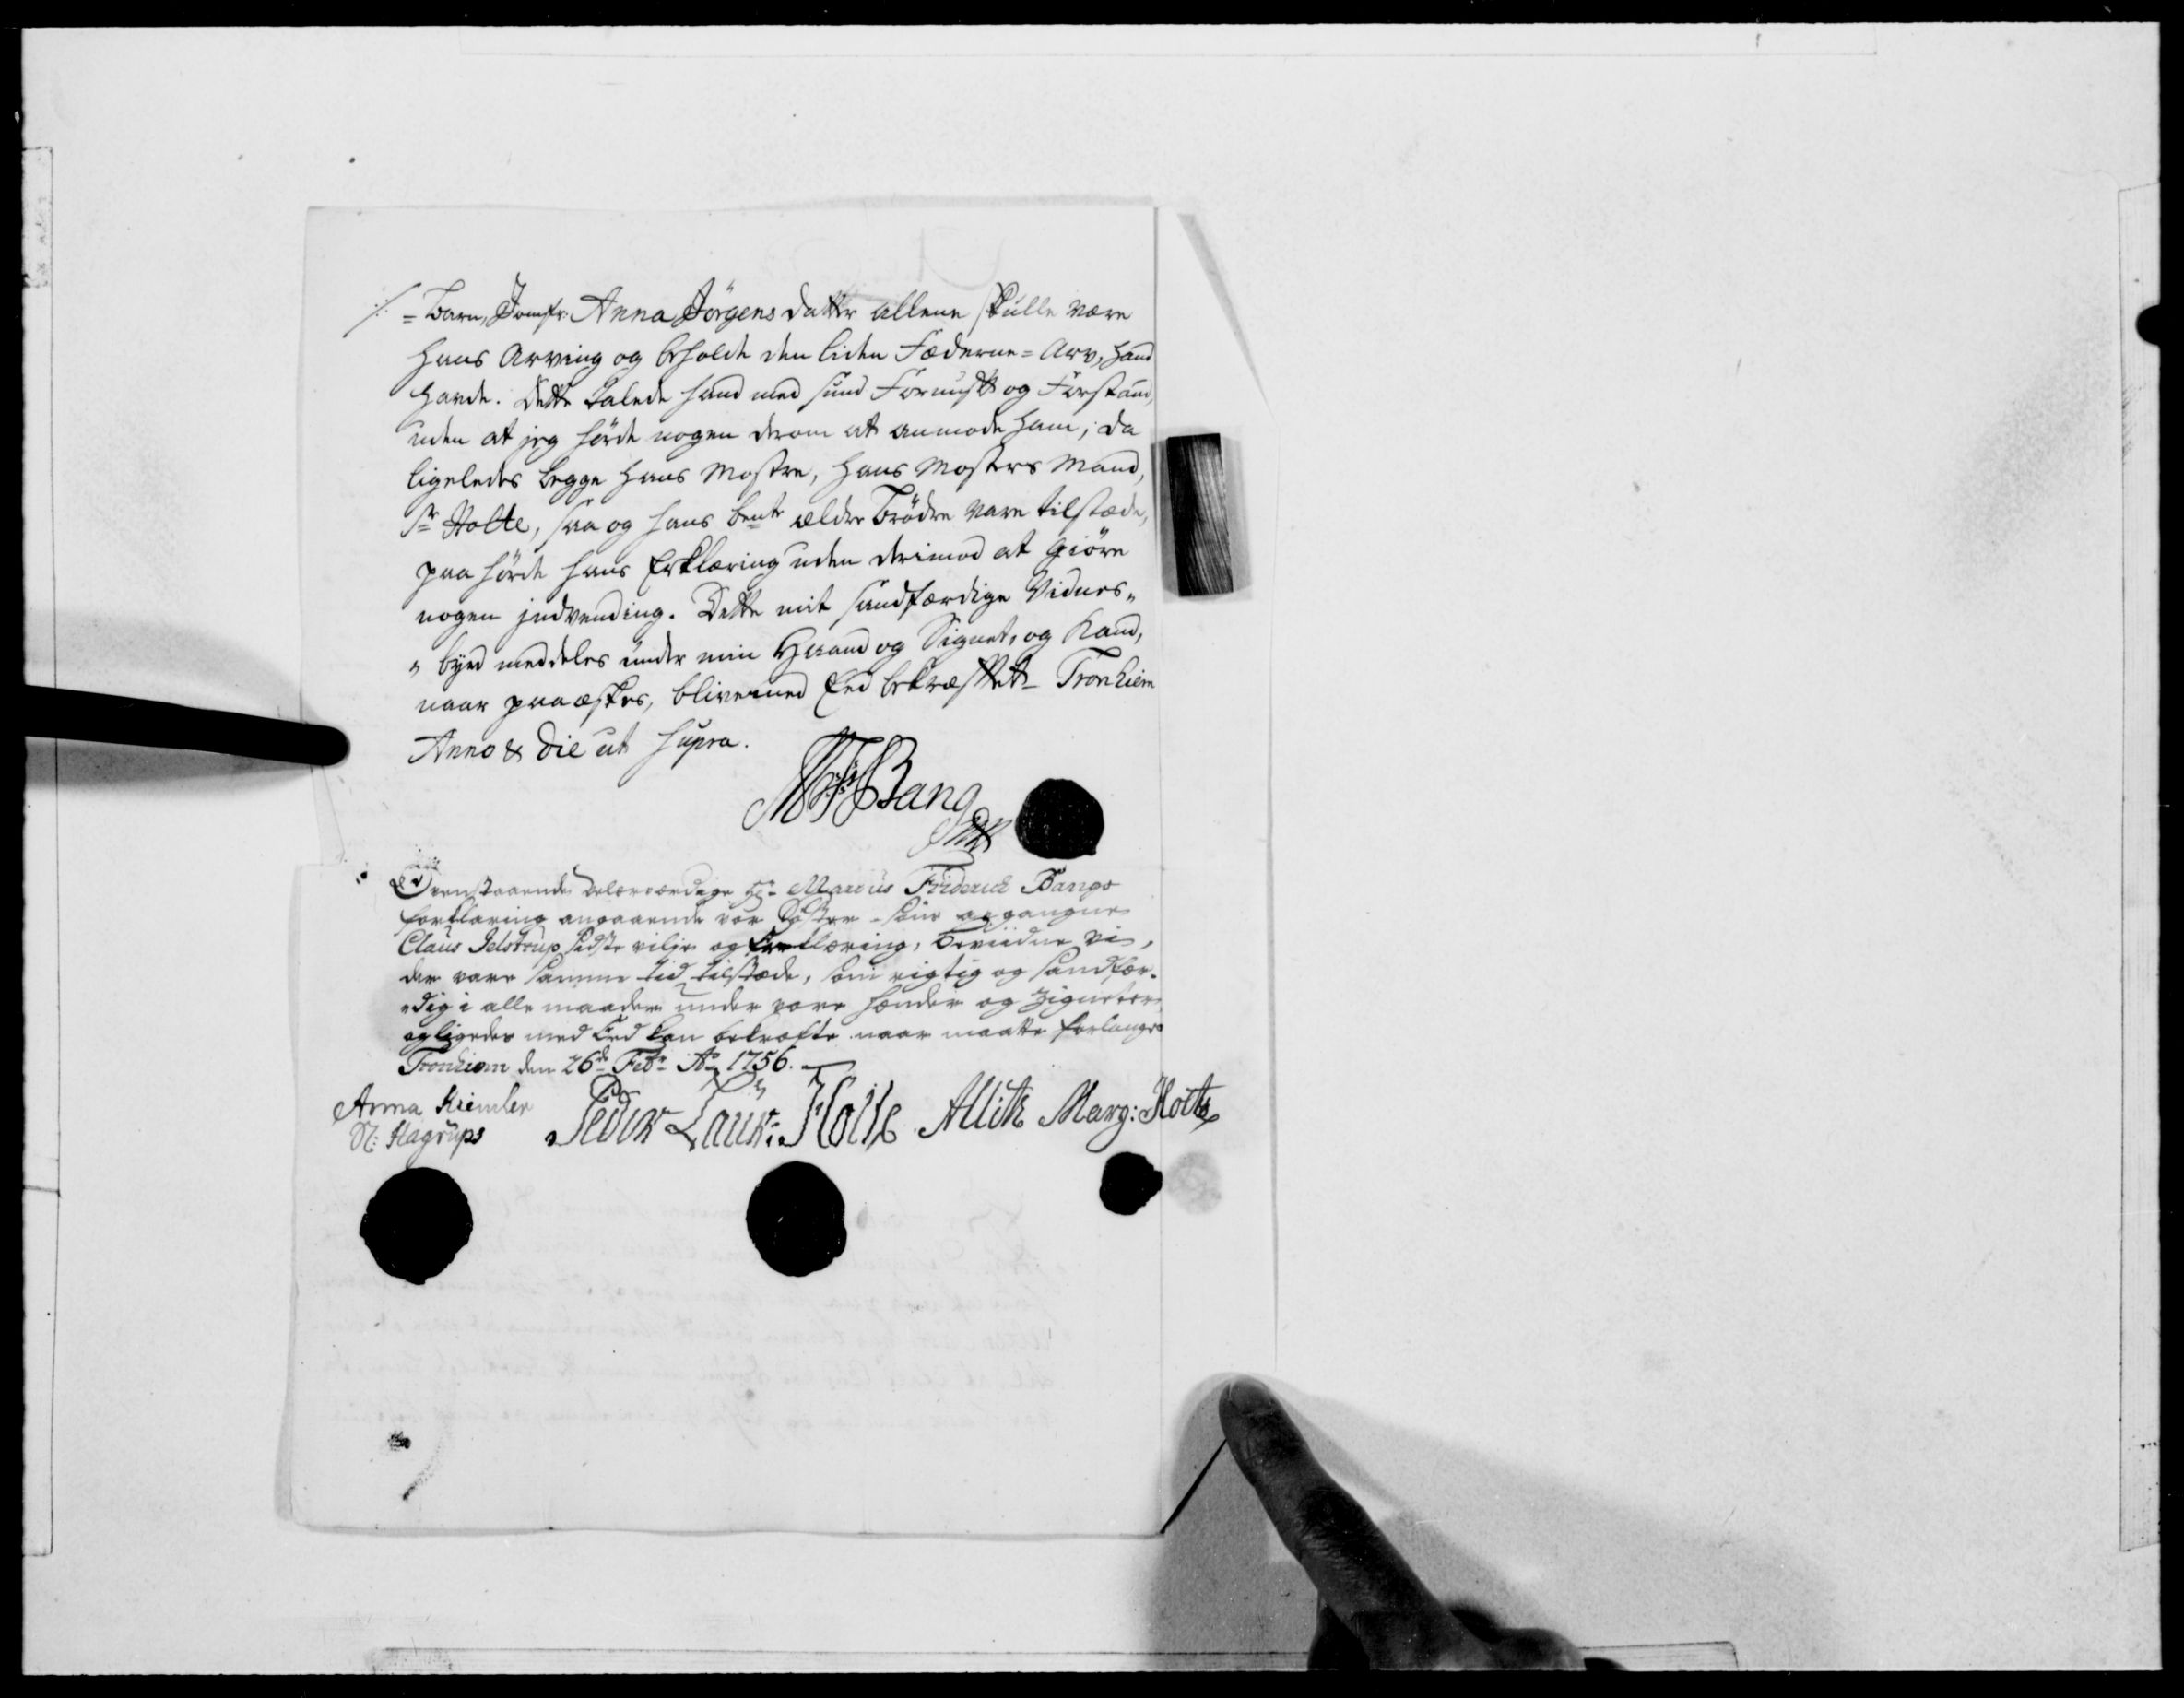 /. = Barn, Jomfr: Anna Jörgens datter allene skulle være
hans Arving og beholde den liden Fæderne= Arv, hand
havde. Dette talede hand med sund Fornuft og Forstand,
uden at jeg hörde nogen derom at anmode ham; da
ligeledes begge hans Mostre, hans Mosters Mand,
Sr Holte, saa og hans ældre Brödre vare tilstæde,
paa hörde hans Erklæring uden derimod at giöre
nogen jndvending. Dette mit sandfærdige Vidnes„
„ byrd meddeles under min Haand og Signet, og kand,
naar paaæskes, blive med Eed bekræftet. Tronhiem
Anno & die ut supra.
MF Bang
Ovenstaaende velærværdige Hr. Marcus Friderich Bangs
forklaring angaaende vor Söster=Söns afgangne
Claus Jelstrup sidste vilje og Erklæring, Bevidner vi,
der vare samme tid tilstæde, som rigtig og sandfær„
„dig i alle maader under vore hænder og Zigneter,
og ligeder med Eed kan bekræfte naar maatte forlanges
Tronhiem den 26de Febr: Ao 1756.
Anna Kiemler Peder Laur: Holte Allith Marg: Holte
Sl: Hagrups